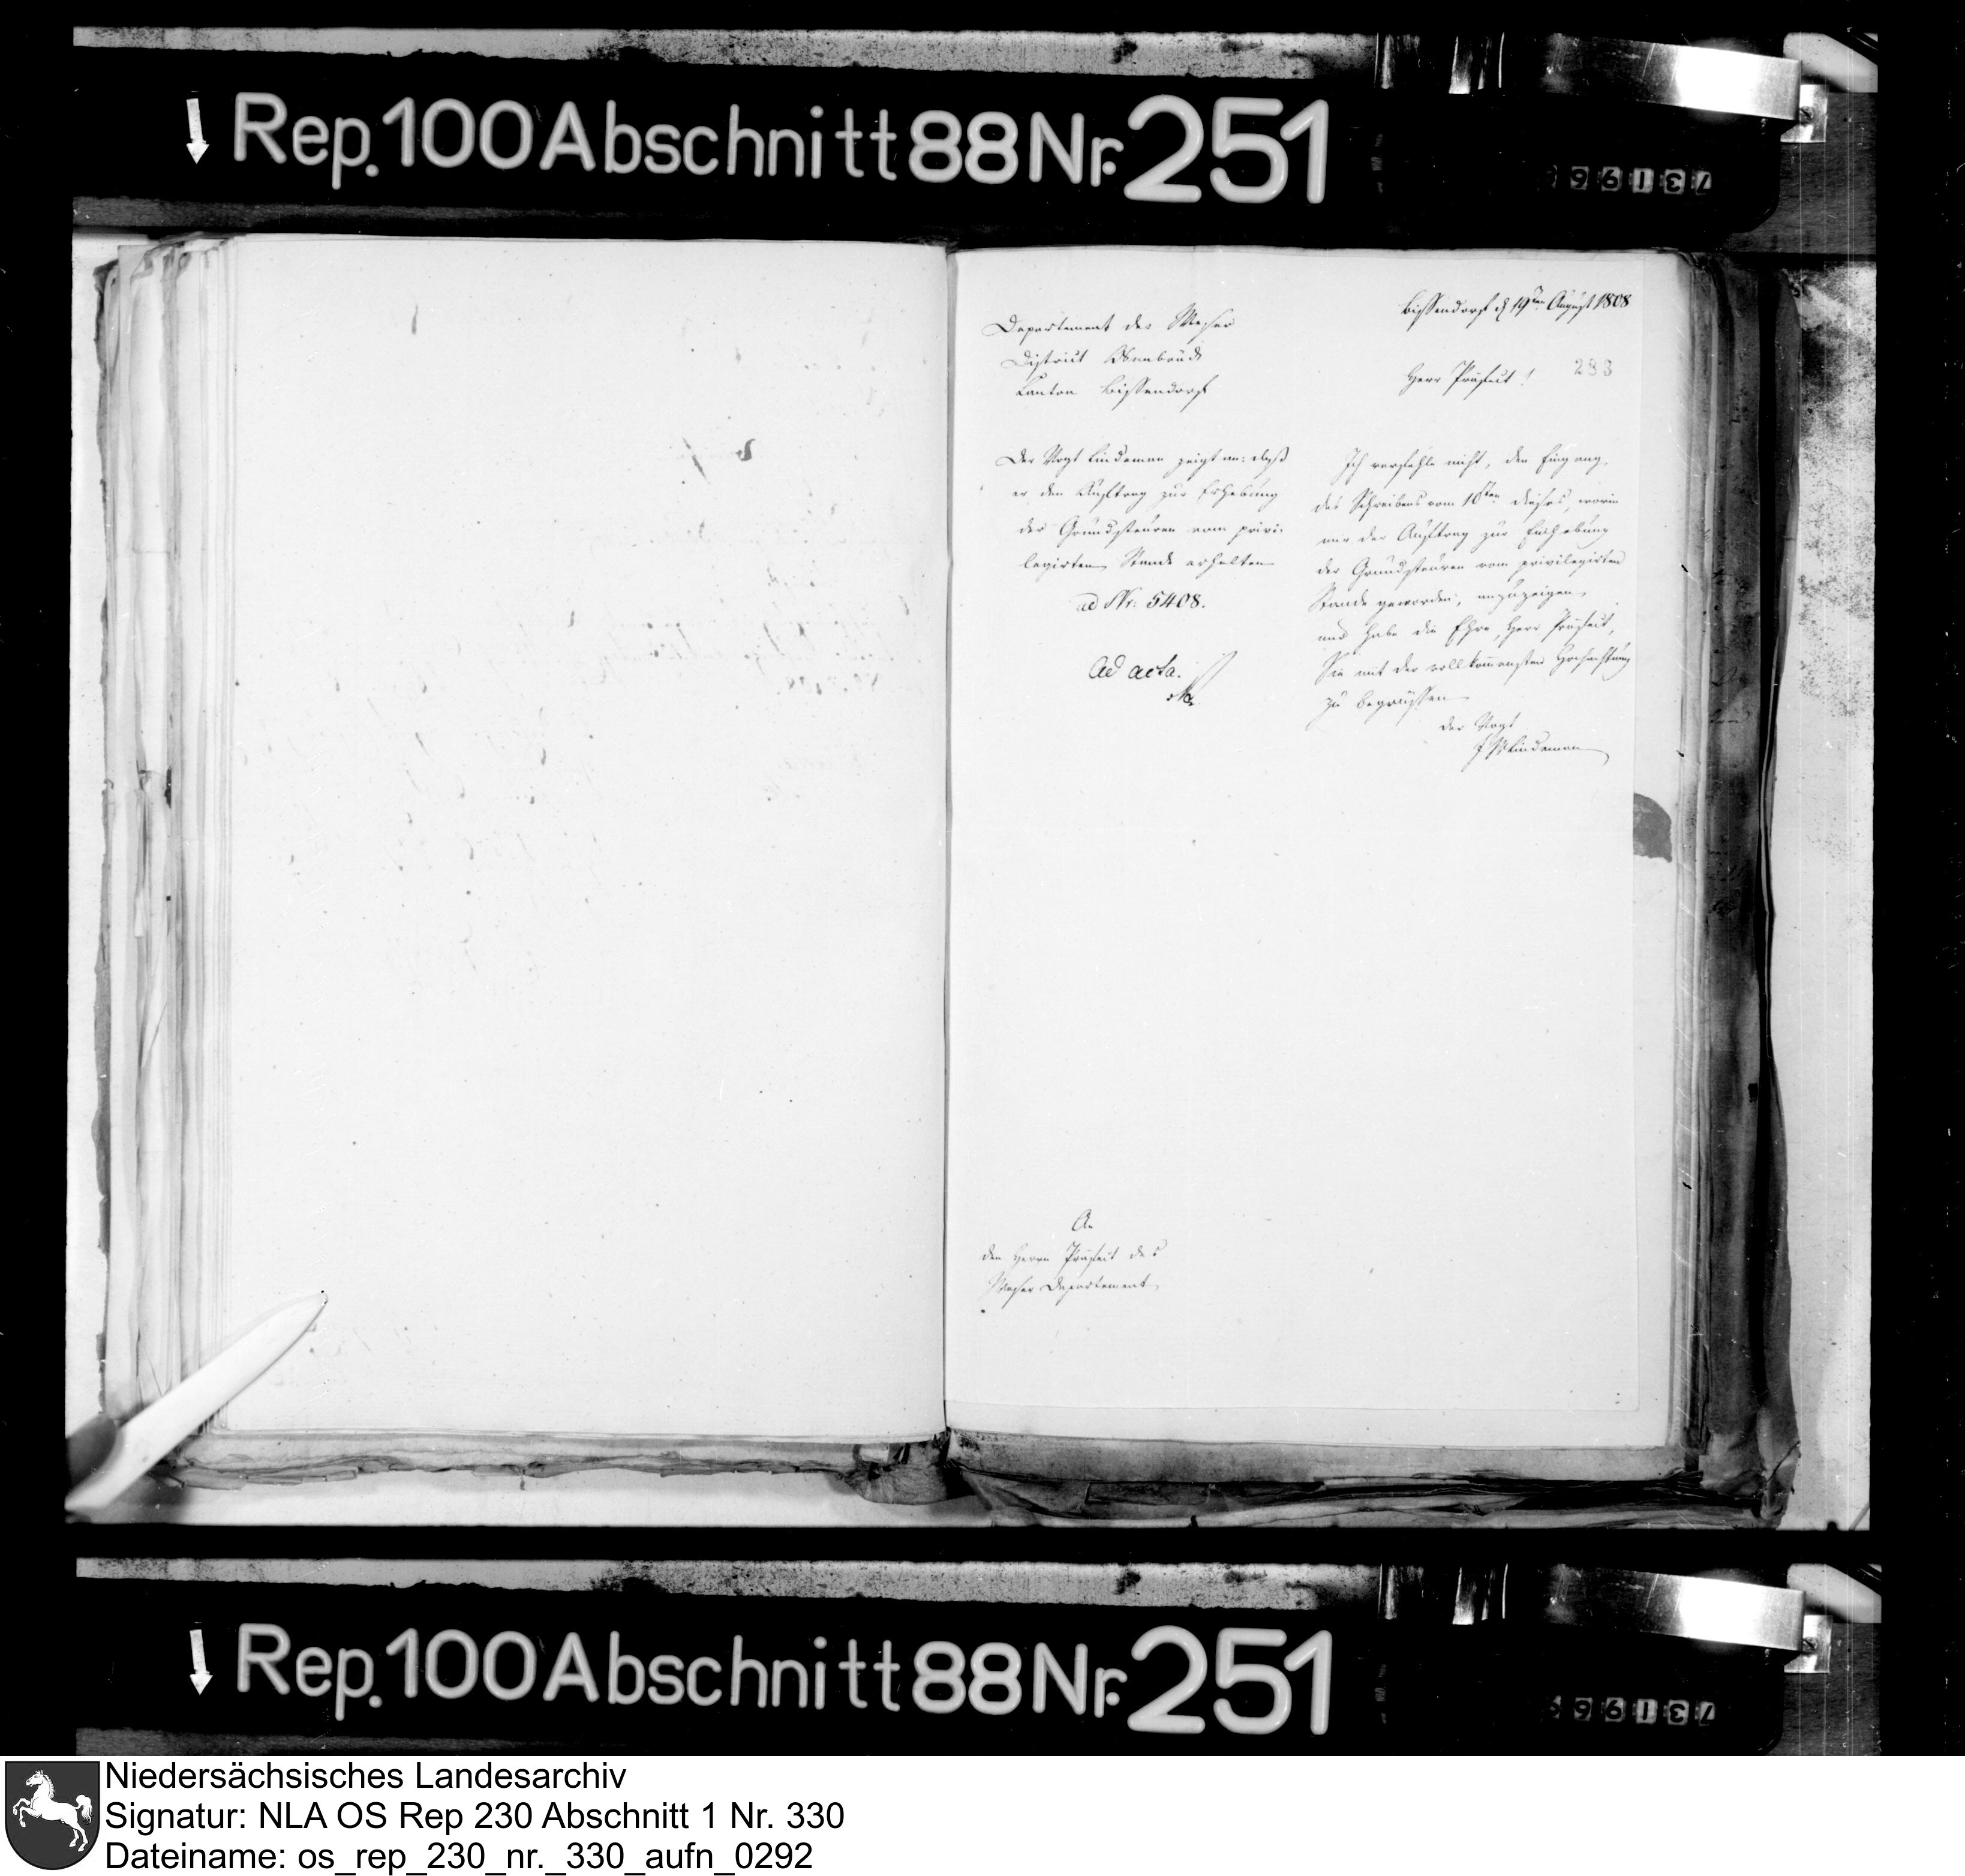 Rep. 100 Abschnitt 88 Nr. 251
Departement der Weser
District Osnabrück
Canton Bissendorf
Bissendorf d 19ten August 1808
283
Herr Präfect!
Der Vogt Lindeman zeigt an: daß
er den Auftrag zur Erhebung
der Grundsteuren vom privi-
legirten Stande erhalten
ad Nr: 5408.
Ad acta.
Ich verfehle nicht, den Eingang,
des Schreibens vom 10ten dieses, worin
mir der Auftrag zur Einhebung
der Grundsteuren vom privilegirten
Stande geworden, anzuzeigen,
und habe die Ehre, Herr Präfect,
Sie mit der vollkommensten Hochachtung
zu begrüssen
der Vogt
Lindeman
An
den Herrn Präfect des
Weser Departement
Rep. 100 Abschnitt 88 Nr. 251
Niedersächsisches Landesarchiv
Signatur: NLA OS Rep 230 Abschnitt 1 Nr. 330
Dateiname: os_rep_230_nr._330_aufn_0292